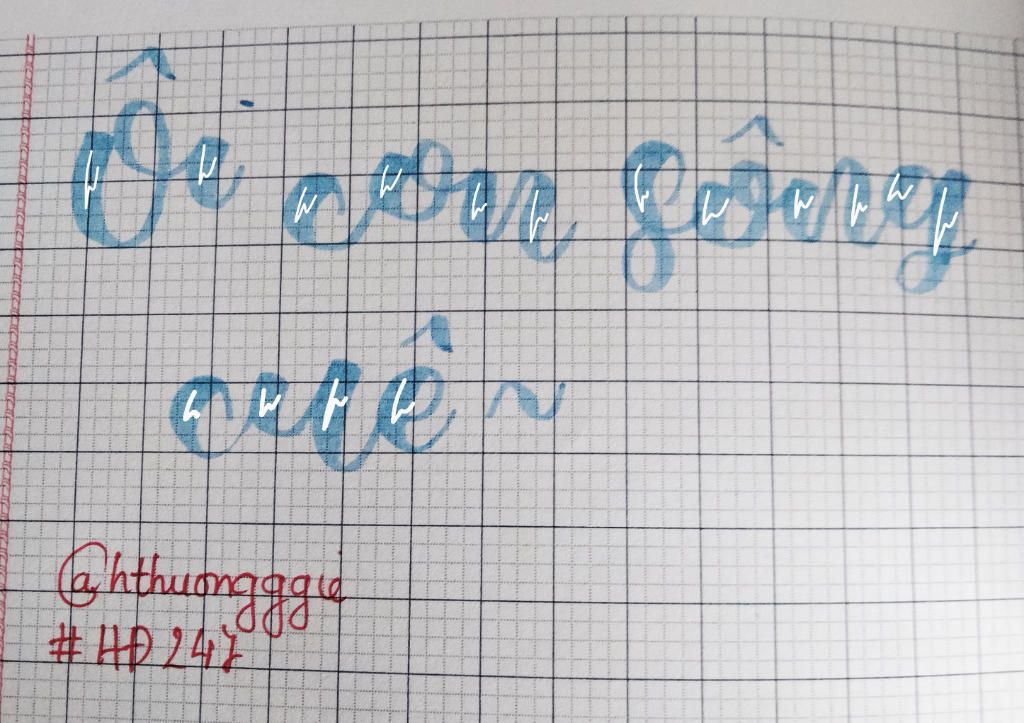 Ôi con sông
quê ~
@hthuongggie
#HĐ247